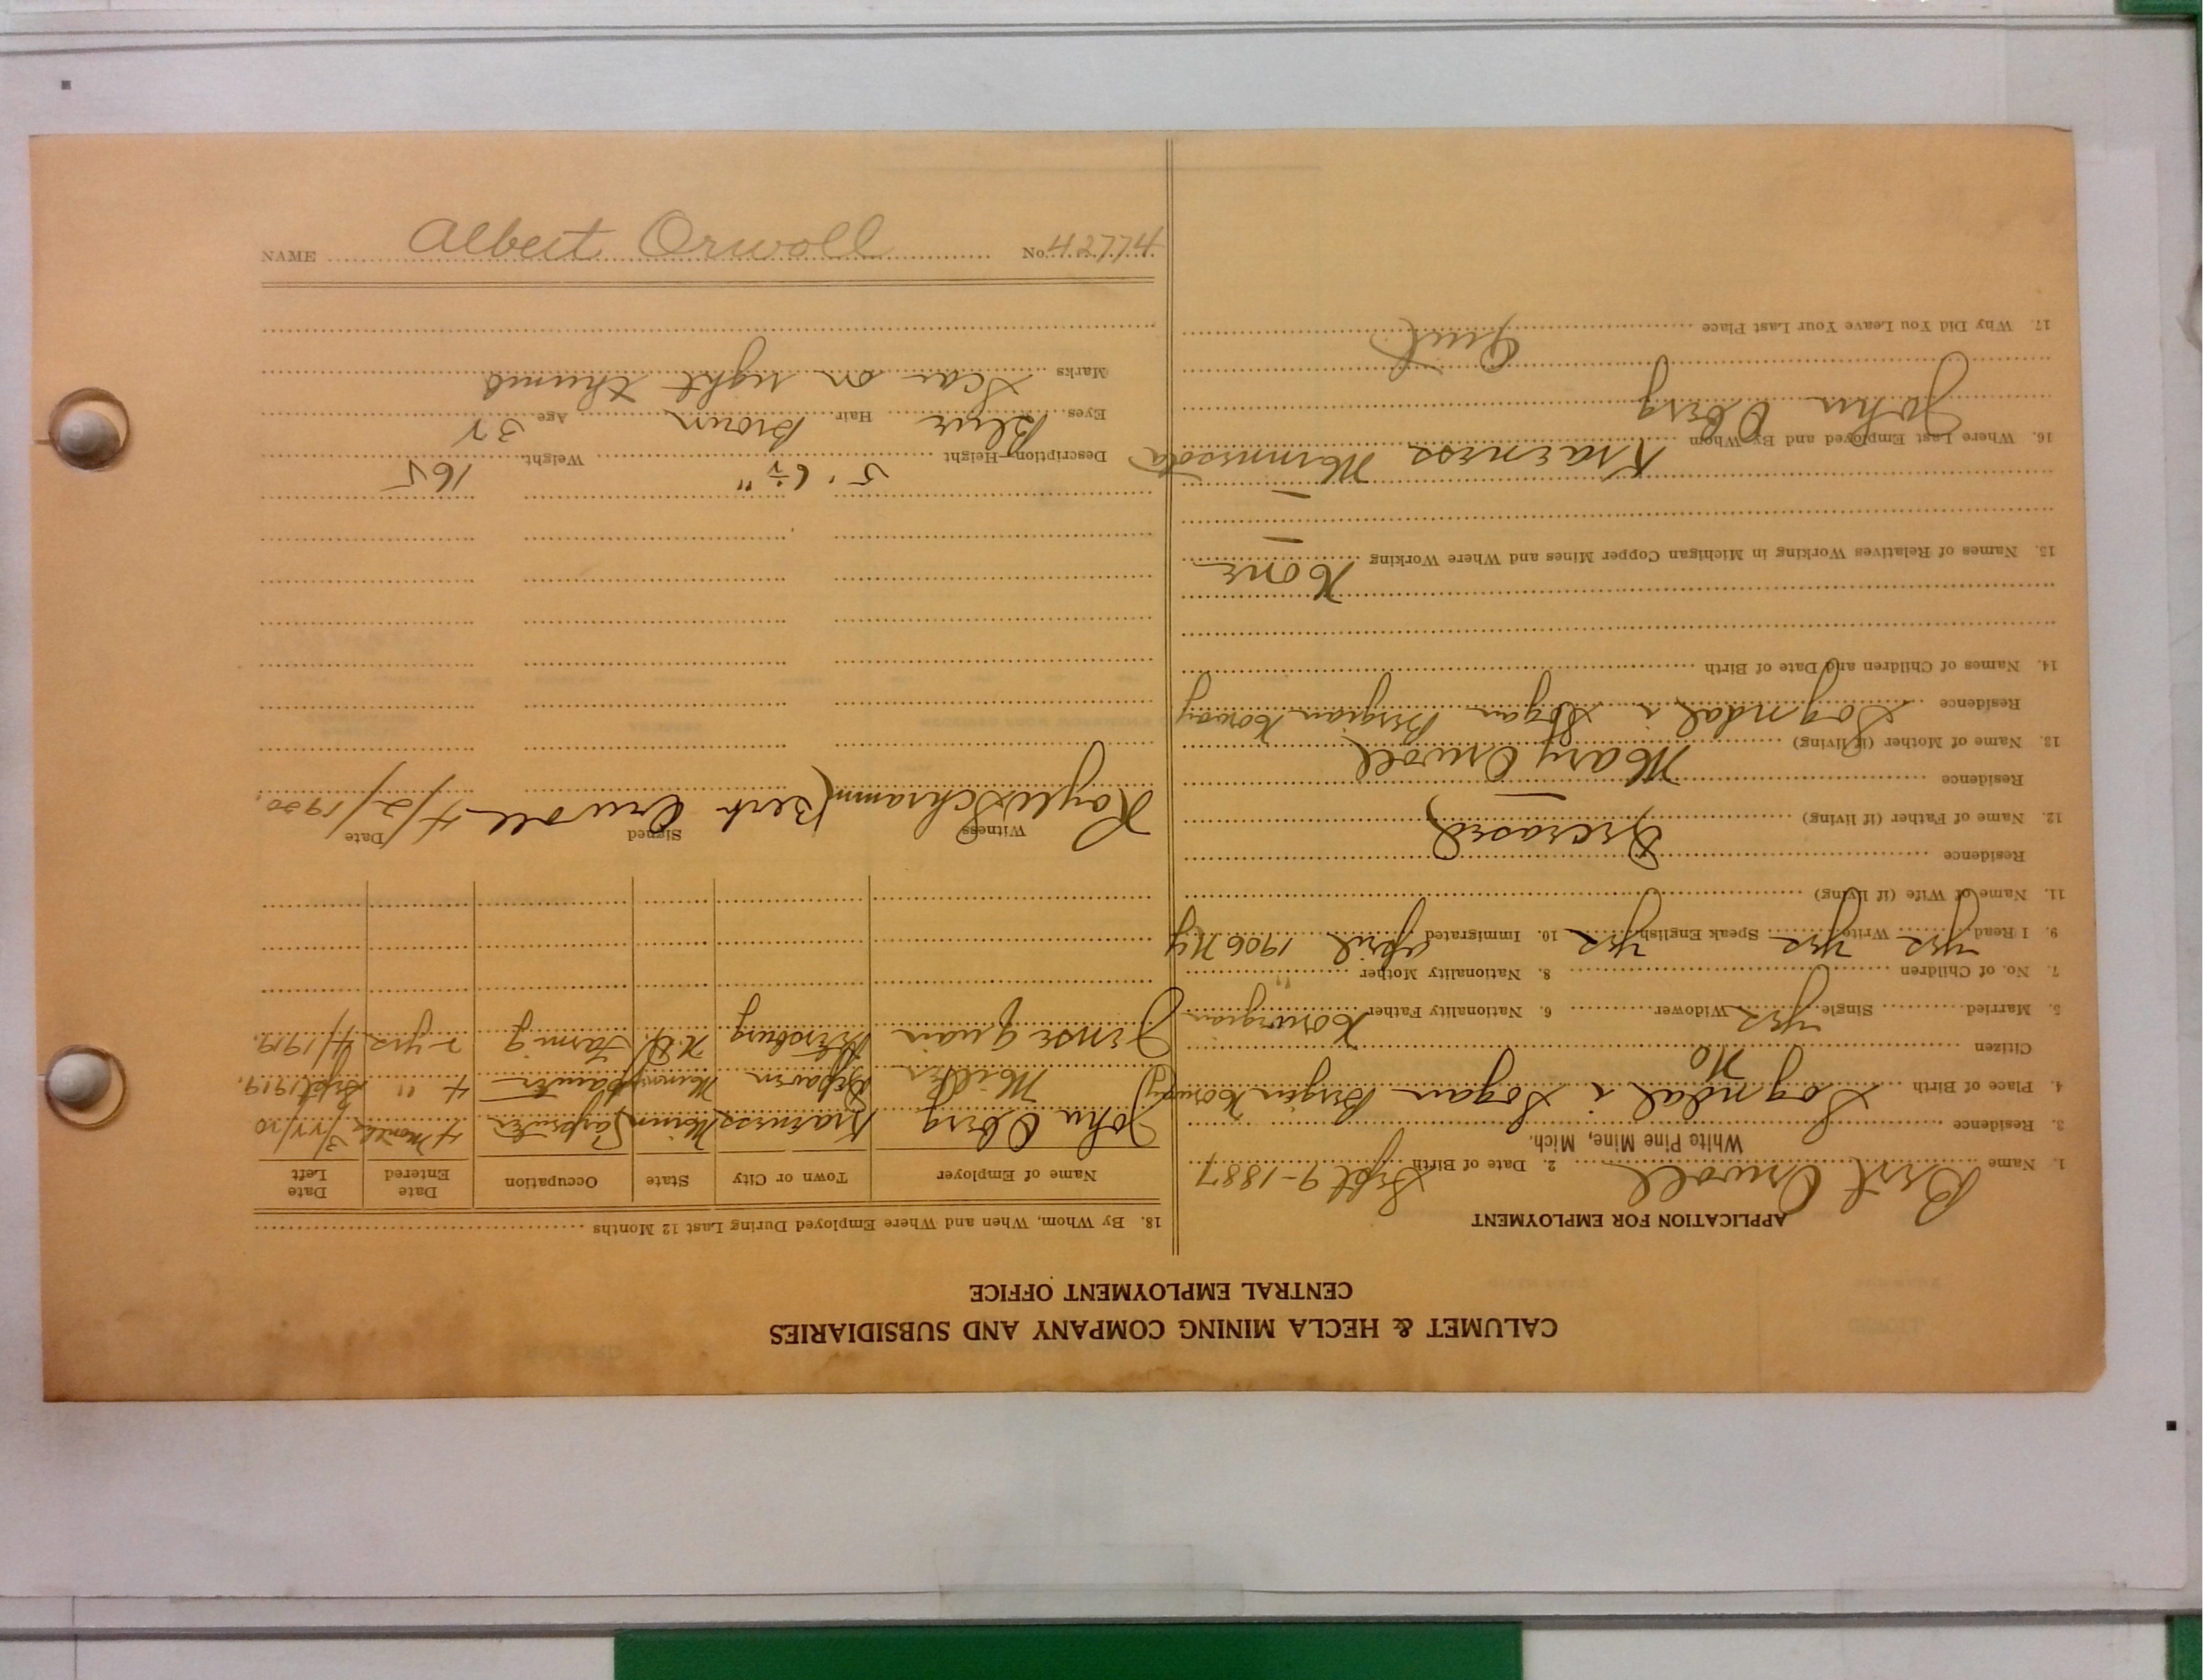 CALUMET & HECLA MINING COMPANY AND SUBSIDIARIES
CENTRAL EMPLOYMENT OFFICE
APPLICATION FOR EMPLOYMENT
1. Name Bert Orwoll 2. Date of Birth Sept 9-1887
White Pine Mine, Mich.
3. Residence
4. Place of Birth Sogndal i Sogan Bergen Norway
Citizen No
5. Married Single yes Widower 6. Nationality Father Norwegian
7. No. of Children 8. Nationality Mother "
9. I Read yes Write yes Speak English yes 10. Immigrated April 1906 N.Y.
11. Name of Wife (if living)
Residence
12. Name of Father (if living) Deceased
Residence
13. Name of Mother (if living) Mary Orwoll
Residence Sogndal i Sogan Bergian Norway
14. Names of Children and Date of Birth
15. Names of Relatives Working in Michigan Copper Mines and Where Working None
16. Where Last Employed and By Whom Minnesota
John Oberg
17. Why Did You Leave Your Last Place Quit
18. By Whom, When and Where Employed During Last 12 Months
Name of Employer Town or City State Occupation Date Entered Date Left
John Oberg Minn Carpenter 4 Months 3/22/20
Miller Minn 4 " Sept 1919.
Jense N.D. Farmig 2 yrs 4/1919.
Witness Signed Date
Schramm Bert Orwoll 4/2/1920.
Description—Height 5' 6½" Weight 165
Eyes Blue Hair Brown Age 32
Marks Scar on right thumb
NAME Albert Orwoll No. 42774